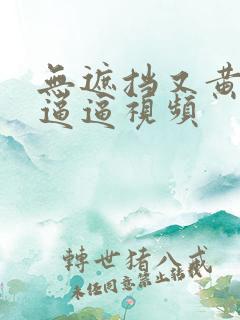 無遮挡又黄
逼逼視頻
轉世猪八戒
未任同意禁止转载